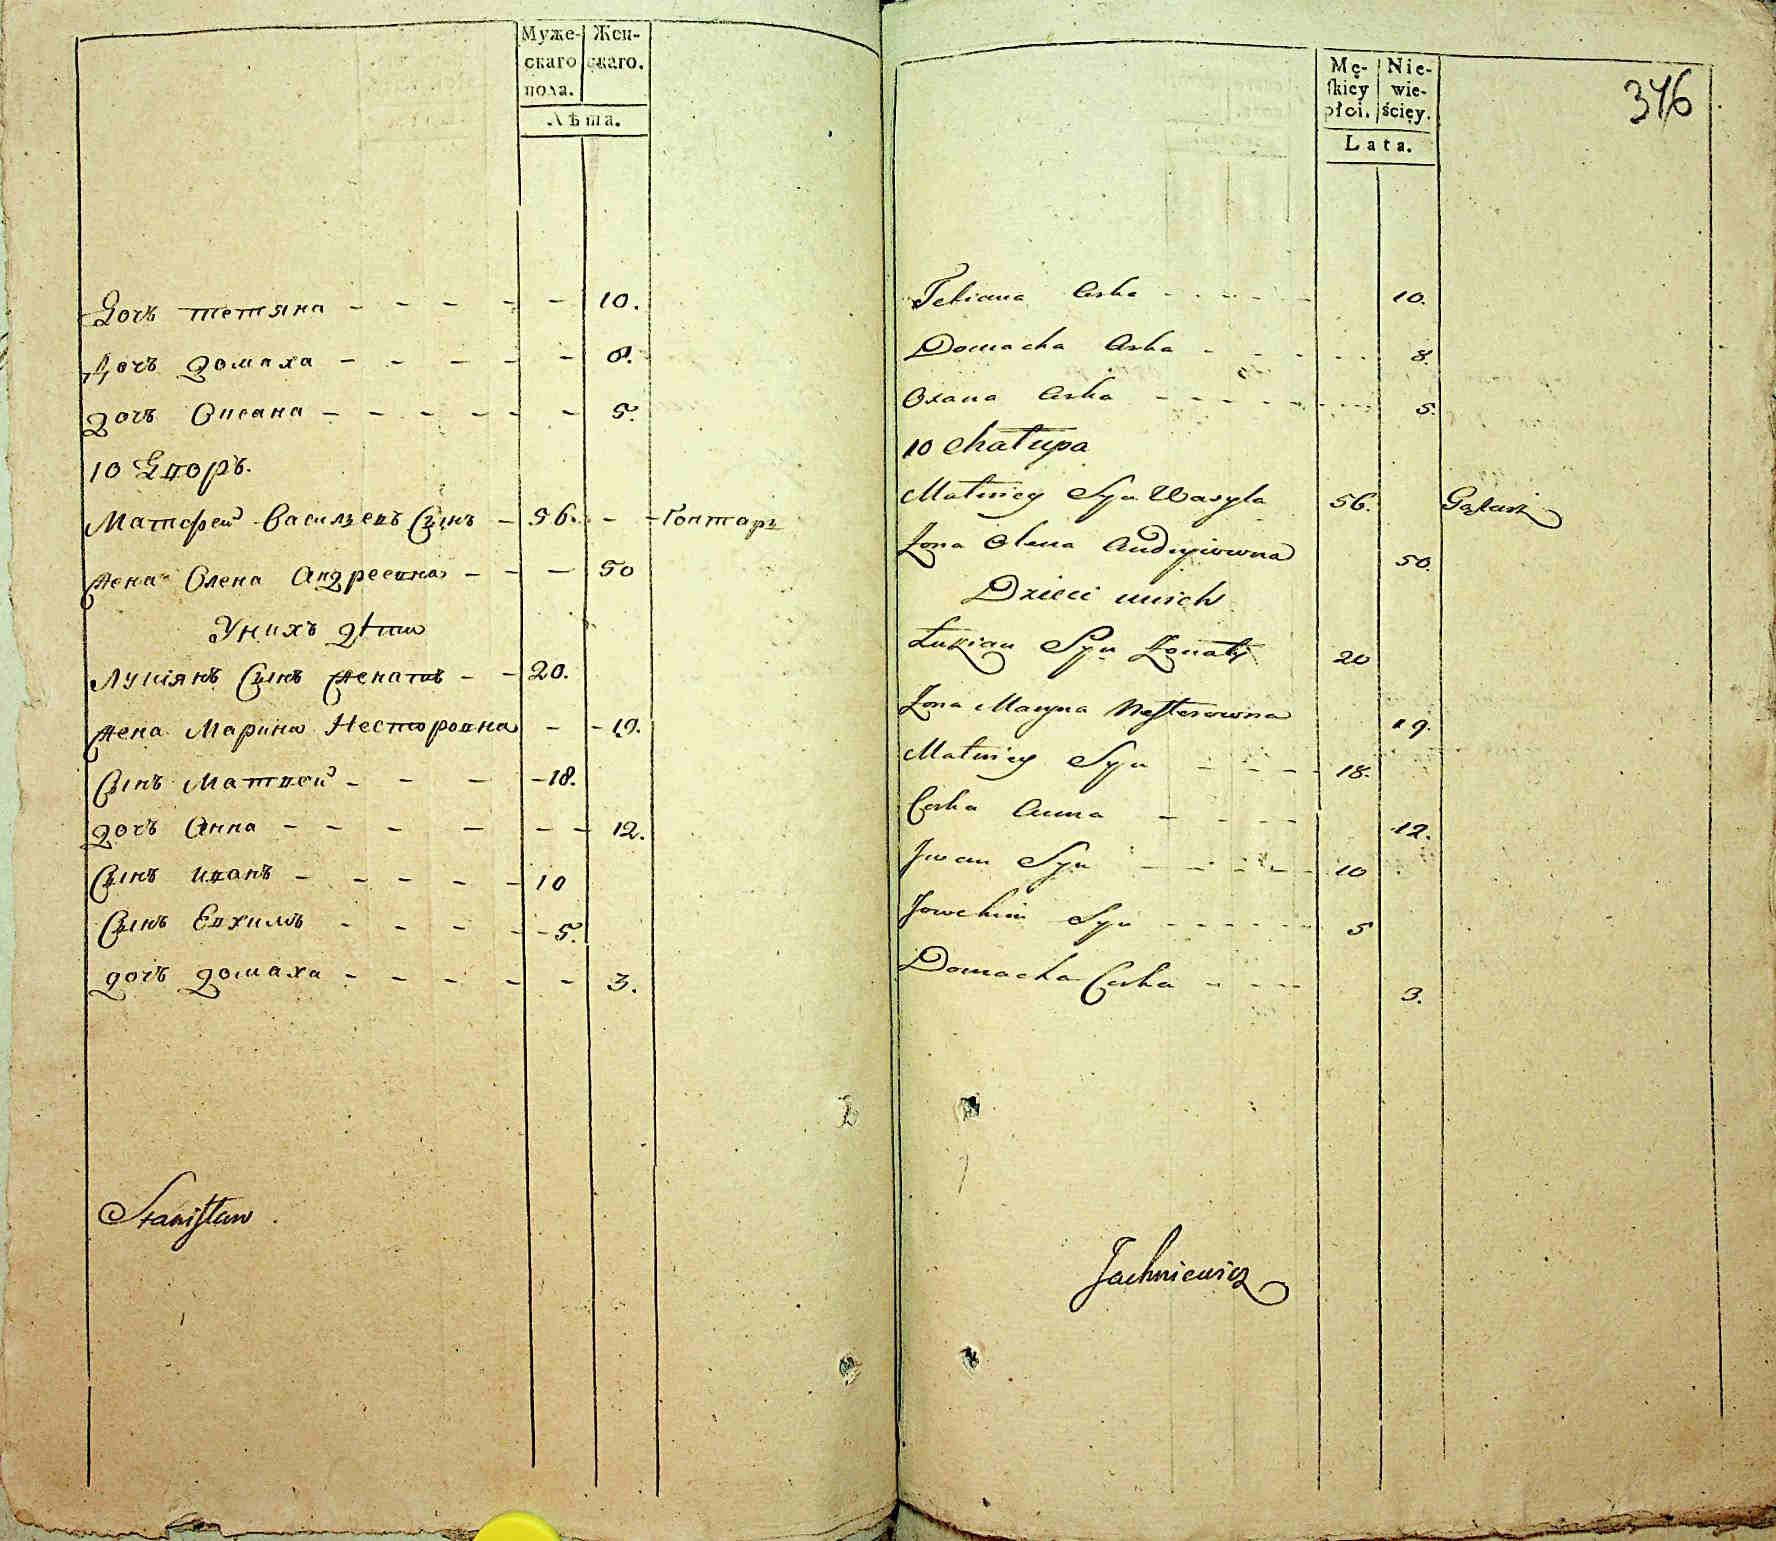 Муже- Жен-
скаго скаго.
пола.
Лѣта.
Дочъ тетяна - - - - - 10.
Дочъ домаха - - - - - 8.
дочъ Оксана - - - - - 5.
10 Дворъ.
Матфей Васильевъ Сынъ - 56. - - Гонтарь
жена Олена Андреевна - - - 50
Унихъ дѣти
Лукіянъ Сынъ женатъ - - 20.
жена Марина Несторовна - - 19.
Сынъ Матвей - - - - 18.
дочъ Анна - - - - - - 12.
Сынъ иванъ - - - - - 10
Сынъ Евхимъ - - - - - 5.
дочъ домаха - - - - - 3.
Stanisław
Mę- Nie-
skiey wie-
płci. ściey.
Lata.
376
Tetiana Corka - - - - - 10.
Domacha Corka - - - - - 8
Oxana Corka - - - - - 5.
10 Chałupa
Matwiey Syn Wasyla 56.
Zona Olena Andryiowna 50.
Dzieci unich
Łukian Syn Zonaty 20
Zona Maryna Nesterowna 19.
Matwiey Syn - - - - 18.
Corka Anna - - - - 12.
Iwan Syn - - - - - 10
Jowchim Syn - - - - - 5
Domacha Corka - - - - 3.
Jachniewicz